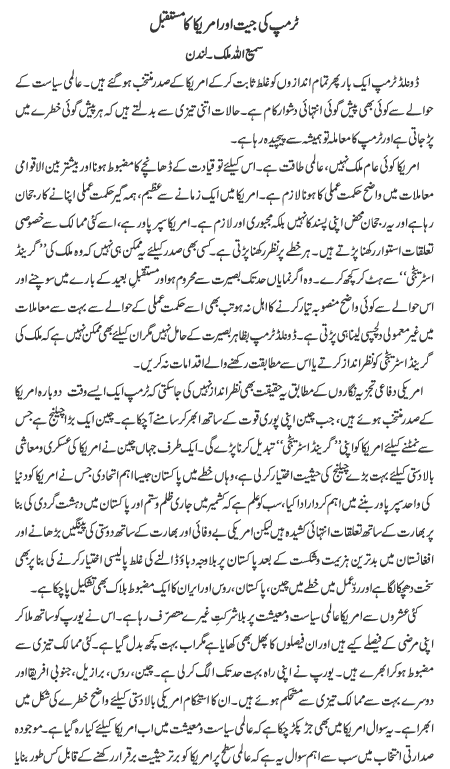 ٹرمپ کی جیت اور امریکا کا مستقبل
سمیع اللہ ملک۔ لندن
ڈونلڈ ٹرمپ ایک بار پھر تمام اندازوں کو غلط ثابت کر کے امریکا کے صدر منتخب ہو گئے ہیں۔ عالمی سیاست کے
حوالے سے کوئی بھی پیش گوئی انتہائی دشوار کام ہے۔ حالات اتنی تیزی سے بدلتے ہیں کہ ہر پیش گوئی خطرے میں
پڑ جاتی ہے اور ٹرمپ کا معاملہ تو ہمیشہ سے پیچیدہ رہا ہے۔
امریکا کوئی عام ملک نہیں، عالمی طاقت ہے۔ اس کیلئے تو قیادت کے ڈھانچے کا مضبوط ہونا اور بیشتر بین الاقوامی
معاملات میں واضح حکمت عملی کا ہونا لازم ہے۔ امریکا میں ایک زمانے سے عظیم، ہمہ گیر حکمت عملی اپنانے کا رجحان
رہا ہے اور یہ رجحان محض اپنی پسند کا نہیں بلکہ مجبوری اور لازم ہے۔ امریکا سپر پاور ہے، اسے کئی ممالک سے خصوصی
تعلقات استوار رکھنا پڑتے ہیں۔ ہر خطے پر نظر رکھنا پڑتی ہے۔ کسی بھی صدر کیلئے یہ ممکن ہی نہیں کہ وہ ملک کی ’’گرینڈ
اسٹریٹجی‘‘ سے ہٹ کر کچھ کرے۔ وہ اگر نمایاں حد تک بصیرت سے محروم ہو اور مستقبل بعید کے بارے میں سوچنے اور
اس حوالے سے کوئی واضح منصوبہ تیار کرنے کا اہل نہ ہو تب بھی اسے حکمت عملی کے حوالے سے بہت سے معاملات
میں غیر معمولی دلچسپی لینا ہی پڑتی ہے۔ ڈونلڈ ٹرمپ بظاہر بصیرت کے حامل نہیں مگر ان کیلئے بھی ممکن نہیں ہے کہ ملک کی
گرینڈ اسٹریٹجی کو نظر انداز کرتے یا اس سے مطابقت رکھنے والے اقدامات نہ کریں۔
امریکی دفاعی تجزیہ نگاروں کے مطابق یہ حقیقت بھی نظر انداز نہیں کی جا سکتی کہ ٹرمپ ایک ایسے وقت دوبارہ امریکا
کے صدر منتخب ہوئے ہیں، جب چین اپنی پوری قوت کے ساتھ ابھر کر سامنے آ چکا ہے۔ چین ایک بڑا چیلنج ہے جس سے
نمٹنے کیلئے امریکا کو اپنی ’’گرینڈ اسٹریٹجی‘‘ تبدیل کرنا پڑے گی۔ ایک طرف جہاں چین نے امریکا کی عسکری و معاشی
بالادستی کیلئے بہت بڑے چیلنج کی حیثیت اختیار کر لی ہے، وہاں خطے میں پاکستان جیسا اہم اتحادی جس نے امریکا کو دنیا
کی واحد سپر پاور بننے میں اہم کردار ادا کیا، سب کو علم ہے کہ کشمیر میں جاری ظلم و ستم اور پاکستان میں دہشت گردی کی بنا
پر بھارت کے ساتھ تعلقات انتہائی کشیدہ ہیں لیکن امریکی بے وفائی اور بھارت کے ساتھ دوستی کی پینگیں بڑھانے اور
افغانستان میں بدترین ہزیمت و شکست کے بعد پاکستان پر بلاوجہ دباؤ ڈالنے کی غلط پالیسی اختیار کرنے کی بنا پر بھی
سخت دھچکا لگا ہے اور ردعمل میں خطے میں چین، پاکستان، روس اور ایران کا ایک مضبوط بلاک بھی تشکیل پا چکا ہے۔
کئی عشروں سے امریکا عالمی سیاست و معیشت پر بلا شرکتِ غیرے متصرف رہا ہے۔ اس نے یورپ کو ساتھ ملا کر
اپنی مرضی کے فیصلے کیے ہیں اور ان فیصلوں کا پھل بھی کھایا ہے مگر اب بہت کچھ بدل گیا ہے۔ کئی ممالک تیزی سے
مضبوط ہو کر ابھرے ہیں۔ یورپ نے اپنی راہ بہت حد تک الگ کر لی ہے۔ چین، روس، برازیل، جنوبی افریقا اور
دوسرے بہت سے ممالک تیزی سے مستحکم ہوئے ہیں۔ ان کا استحکام امریکی بالادستی کیلئے واضح خطرے کی شکل میں
ابھرا ہے۔ یہ سوال امریکا میں بھی جڑ پکڑ چکا ہے کہ عالمی سیاست و معیشت میں اب امریکا کیلئے کیا رہ گیا ہے۔ موجودہ
صدارتی انتخاب میں سب سے اہم سوال یہ ہے کہ عالمی سطح پر امریکا کو برتر حیثیت برقرار رکھنے کے قابل کس طور بنایا